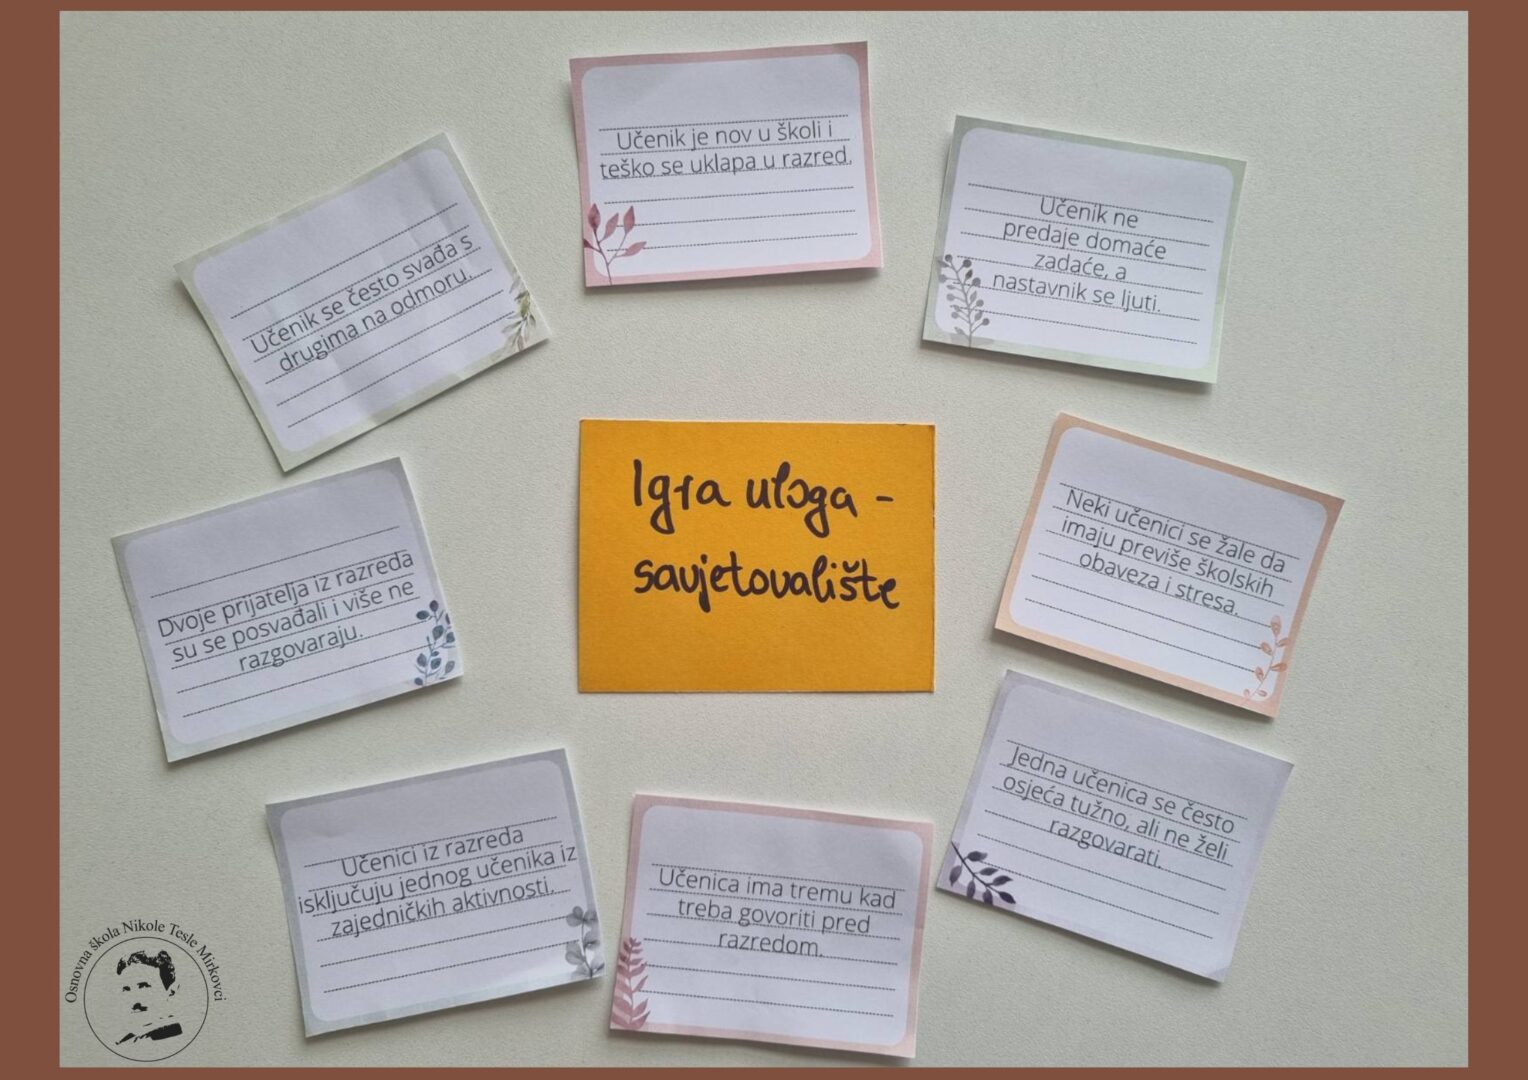 Učenik je nov u školi i
teško se uklapa u razred.
Učenik ne
predaje domaće
zadaće, a
nastavnik se ljuti.
Učenik se često svađa s
drugima na odmoru.
Igra uloga -
savjetovalište
Neki učenici se žale da
imaju previše školskih
obaveza i stresa.
Dvoje prijatelja iz razreda
su se posvađali i više ne
razgovaraju.
Jedna učenica se često
osjeća tužno, ali ne želi
razgovarati.
Učenici iz razreda
isključuju jednog učenika iz
zajedničkih aktivnosti.
Učenica ima tremu kad
treba govoriti pred
razredom.
Osnovna škola Nikole Tesle Mirkovci